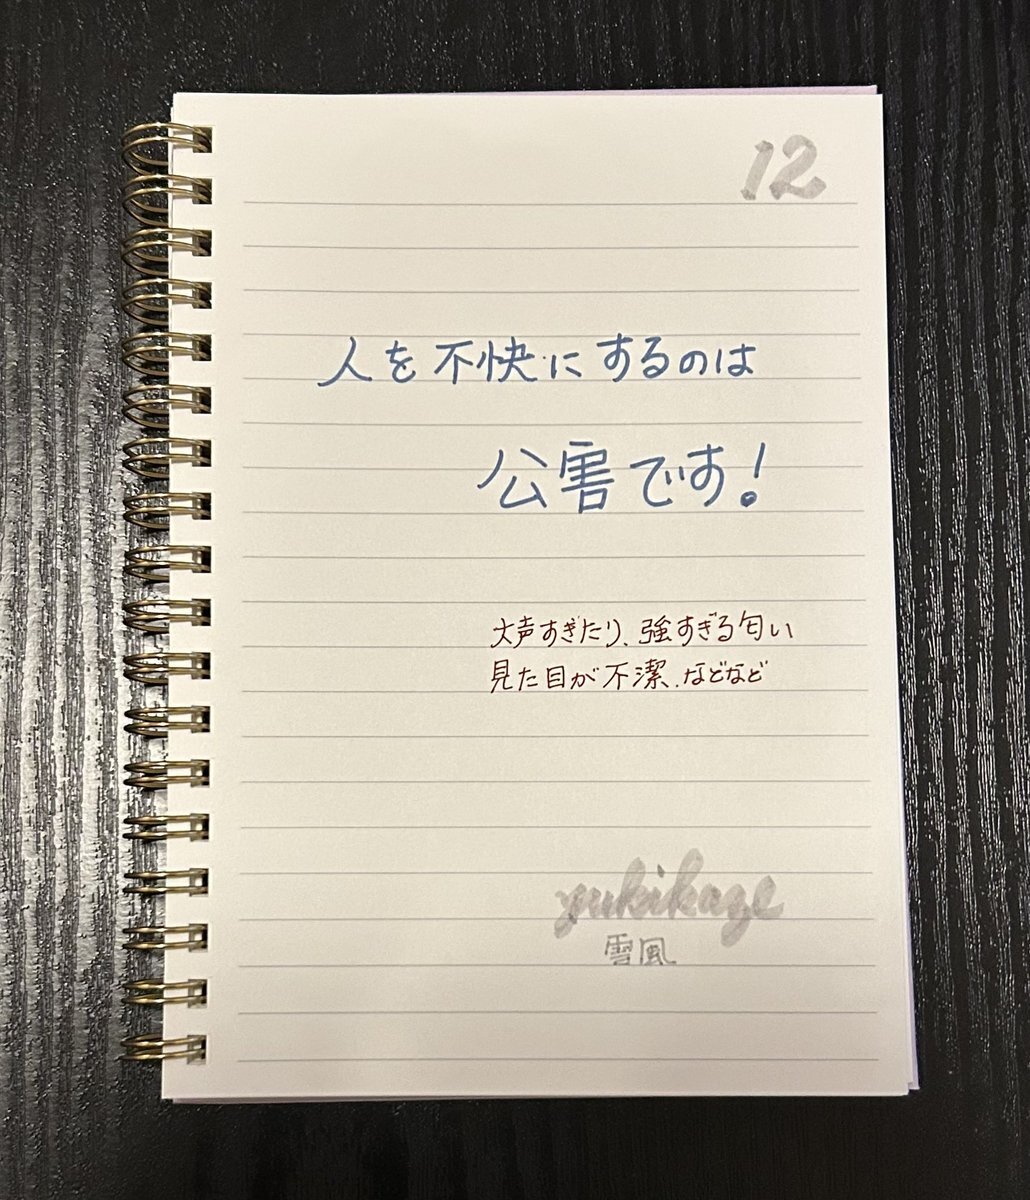 12
人を不快にするのは
公害です!
大声すぎたり、強すぎる匂い
見た目が不潔、などなど
yukikaze
雪風